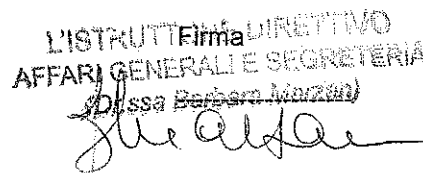 L'ISTRUTTORE DIRETTIVO
Firma
AFFARI GENERALI E SEGRETERIA
(D.ssa Barbara Marzan)